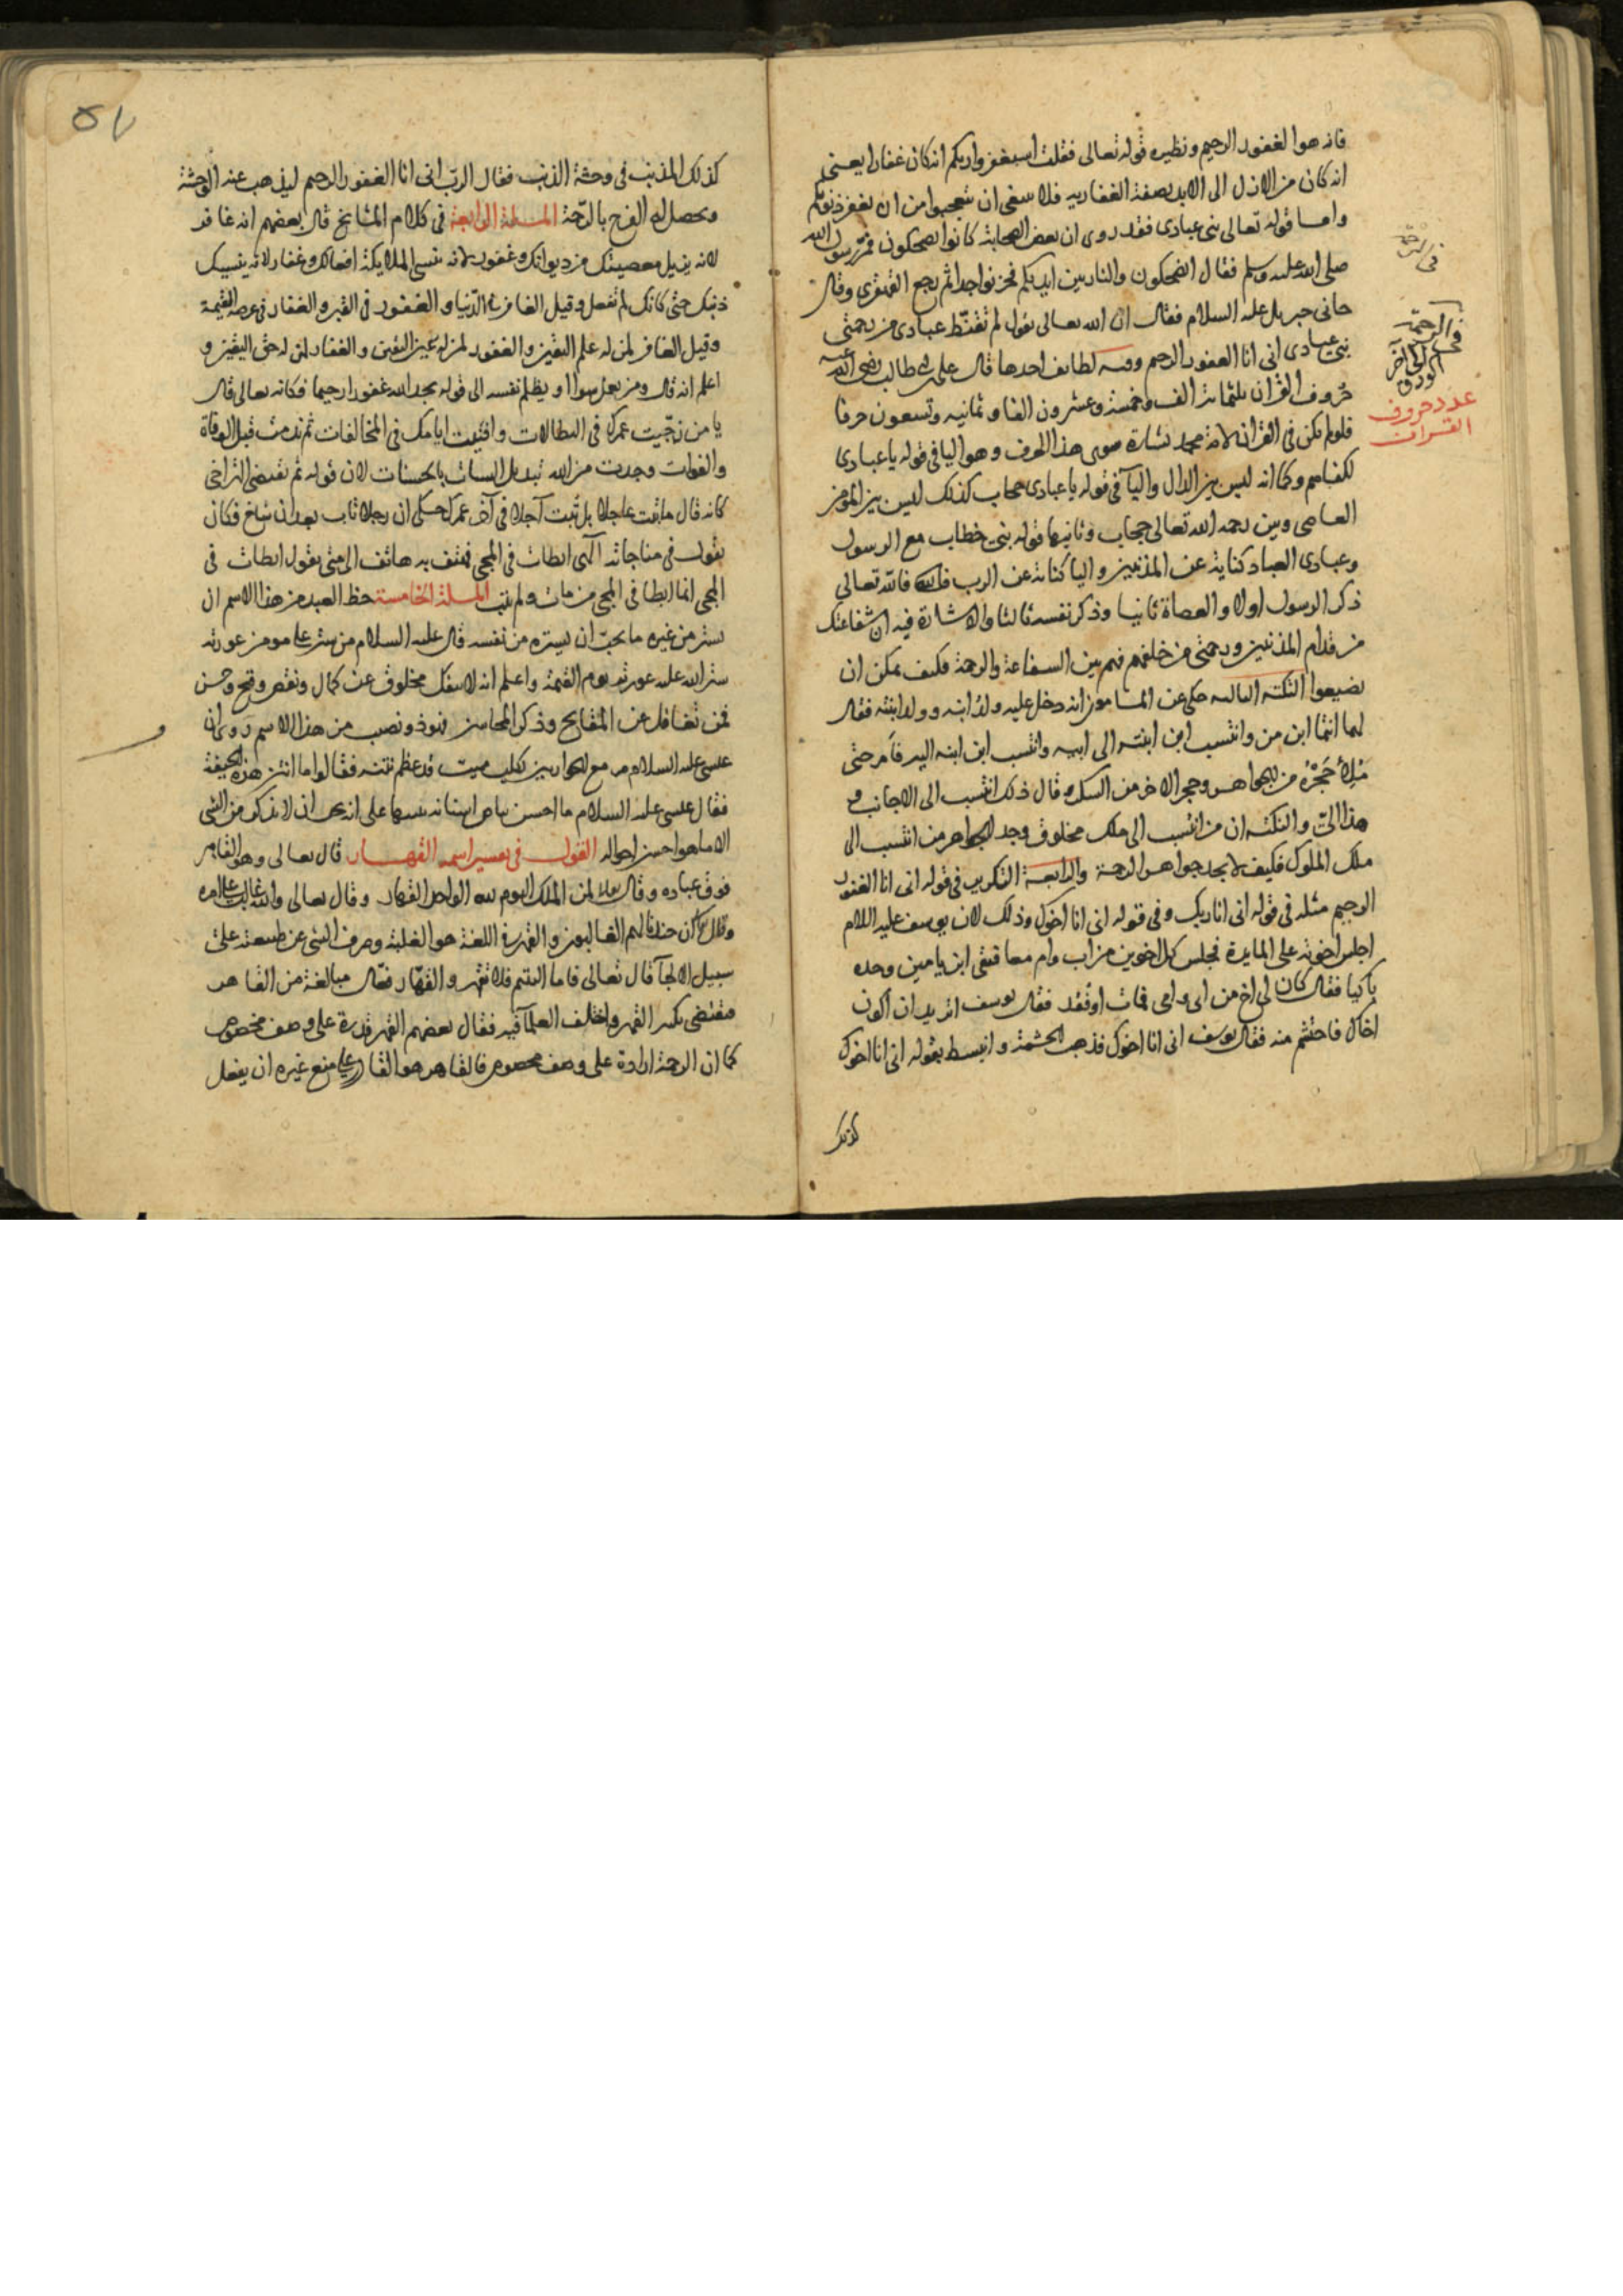 فانه هو الغفور الرحيم ونظيره قوله تعالى فقلت استغفروا ربكم انه كان غفارا يعنى
انه كان من الازل الى الابد بصفة الغفارية فلا ينبغى ان تتعجبوا من ان يغفر ذنوبكم
واما قوله تعالى نبى عبادى فقد روى ان بعض الصحابة كانوا يضحكون فمر رسول الله
صلى الله عليه وسلم فقال اتضحكون والنار بين ايديكم فحزنوا جدا ثم رجع القهقرى وقال
جانى جبريل عليه السلام فقال ان الله تعالى يقول لم تقنط عبادى من رحمتى
نبئ عبادى انى انا الغفور الرحيم وفيه لطايف احدها قال على بن ابى طالب رضى الله عنه
حروف القران ثلثماية الف وخمسة وعشرون الفا وثمانيه وتسعون حرفا
فلو لم تكن فى القران لامة محمد بشارة سوى هذا الحرف وهو اليا فى قوله يا عبادى
لكفاهم وكما انه ليس بين الدال واليآ فى قوله يا عبادى حجاب كذلك ليس بين المؤمن
العاصى وبين رحمه الله تعالى حجاب وثانيها قوله نبئ خطاب مع الرسول
وعبادى العباد كناية عن المذنبين واليا كناية عن الرب فالله تعالى
ذكر الرسول اولا والعصاة ثانيا وذكر نفسه ثالثا والاشارة فيه ان شفاعتك
من قدام المذنبين ورحمتى من خلفهم فهم بين الشفاعة والرحمة فكيف يمكن ان
يضيعوا النكتة الثالثه حكى عن المامون انه دخل عليه ولد ابنه وولد ابنته فقال
لهما انتما ابن من وانتسب ابن ابنته الى ابيه وانتسب ابن ابنه اليه فامر حتى
مُلئ حجره من الجواهر وحجر الاخر من السكر وقال ذلك انتسب الى الاجانب و
هذا الىّ والنكته ان من انتسب الى ملك مخلوق وجد الجواهر من انتسب الى
ملك الملوك فكيف لا يجد جواهر الرحمة والرابعة التكرير فى قوله انى انا الغفور
الرحيم مثله فى قوله انى انا ربك وفى قوله انى انا اخوك وذلك لان يوسف عليه السلام
اجلس اخوته على المايدة فجلس كل اخوين من اب وام معا فبقى ابن يامين وحده
باكيا فقال كان لى اخ من ابى وامى فمات او فقد فقال يوسف اتريد ان اكون
اخاك فاحتشم منه فقال يوسف انى انا اخوك فذهب الحشمة وانبسط بقوله انى انا اخوك
كذلك
فى الرحمة
فى الرحمة
الى آخر
الورق
عدد حروف
القران
كذلك المذنب فى وحشة الذنب فقال الرب انى انا الغفور الرحيم ليذهب عنه الوحشة
ويحصل له الفرح بالرحمة المسئلة الرابعة فى كلام المشايخ قال بعضهم انه غافر
لانه يزيل معصيتك من ديوانك وغفور لانه تنسى الملايكة افعالك وغفار لانه ينسيك
ذنبك حتى كانك لم تفعل وقيل الغافر فى الدنيا والغفور فى القبر والغفار فى عرصة القيمة
وقيل الغافر لمن له علم اليقين والغفور لمن له عين اليقين والغفار لمن له حق اليقين و
اعلم انه قال ومن يعمل سوا او يظلم نفسه الى قوله يجد الله غفورا رحيما فكانه تعالى قال
يا من زجّيت عمرك فى البطالات وافنيت ايامك فى المخالفات ثم ندمت قبل الوفاة
والفوات وجدت من الله تبديل السيات بالحسنات لان قوله ثم تقتضى التراخى
كانه قال ما تبت عاجلا بل تبت آجلا فى آخر عمرك حكى ان رجلا تاب بعد ان شاخ فكان
يقول فى مناجاته الهى ابطات فى المجى فهتف به هاتف الى متى يقول ابطات فى
المجى انما ابطا فى المجى من مات ولم يتب المسلة الخامسة حظ العبد من هذا الاسم ان
يستر من غيره ما يحب ان يستره من نفسه قال عليه السلام من ستر على مومن عورته
ستر الله عليه عورته يوم القيمة واعلم انه لا ينفك مخلوق عن كمال ونقص وقبح وحسن
فمن تغافل عن المقابح وذكر المحاسن فهو ذو نصيب من هذا الاسم روى ان
عيسى عليه السلام مر مع الحواريين بكلب ميت قد عظم نتنه فقالوا ما انتن هذه الجيفة
فقال عيسى عليه السلام ما احسن بياض اسنانه تنبيها على انه يجب ان لا يذكر من الشى
الا ما هو احسن احواله القول فى تفسير اسمه القهار قال تعالى وهو القاهر
فوق عباده وقال تعالى لمن الملك اليوم لله الواحد القهار وقال تعالى والله غالب على امره
وقال وان جندنا لهم الغالبون والقهر فى اللغة هو الغلبة وصرف الشى عن طبيعته على
سبيل الالجآ قال تعالى فاما اليتيم فلا تقهر والقهار فعّال مبالغة من القاهر
فيقتضى تكثير القهر واختلف العلمآ فيه فقال بعضهم القهر قدرة على وصف مخصوص
كما ان الرحمة ارادة على وصف مخصوص فالقاهر هو القادر على منع غيره ان يفعل